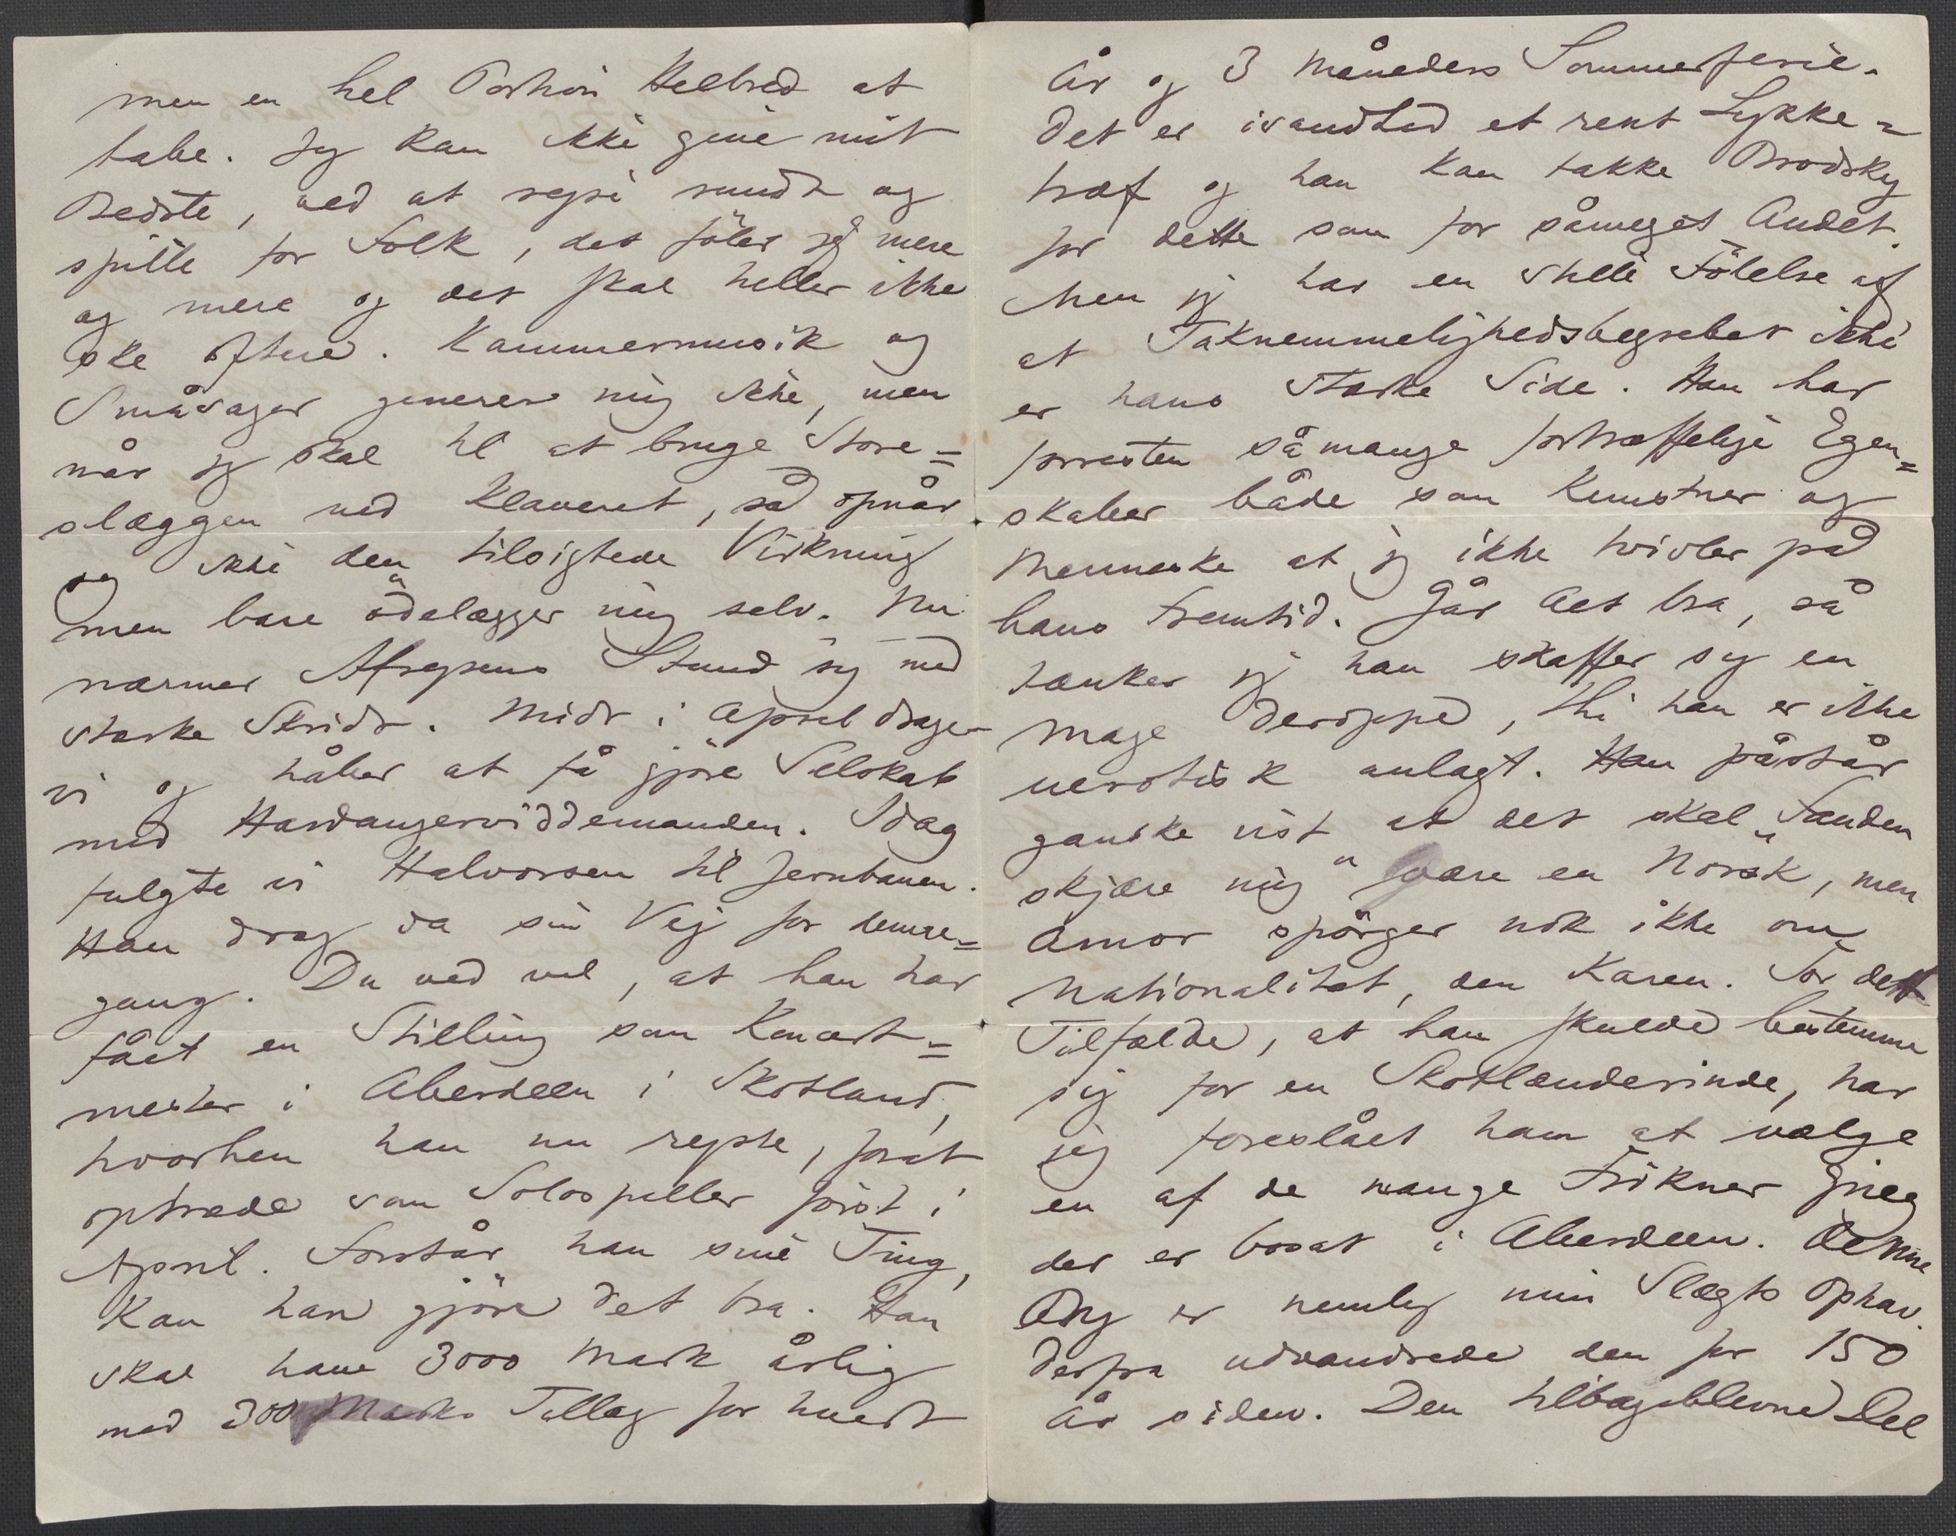 men en hel Portion Helbred at
tabe. Jeg kan ikke give mit
Bedste, ved at rejse rundt og
spille for Folk, det föler jeg mere
og mere og det skal heller ikke
ske oftere. Kammermusik og
Småsager generer mig ikke, men
når jeg skal til at bruge Store=
slæggen ved Klaveret, så opnår
jeg ikke den tilsigtede Virkning
men bare ödelægger mig selv. Nu
nærmer Afrejsens Stund sig med
stærke Skridt. Midt i April drager
vi og håber at få gjöre Selskab
med Hardangerviddemanden. Idag
fulgte vi Halvorsen til Jernbanen.
Han drog da sin Vej for denne=
gang. Du ved vel, at han har
fået en Stilling som Koncert=
mester i Aberdeen i Skotland,
hvorhen han nu rejste, forat
optræde som Solospiller först i
April. Forstår han sine Ting,
kan han gjöre det bra. Han
skal have 3000 Mark årlig
med 300 Marks Tillæg for hvert
År og 3 Måneders Sommerferie.
Det er isandhed et rent Lykke=
træf og han kan takke Brodsky
for dette som for såmeget Andet.
Men jeg har en stille Fölelse af
at Taknemmelighedsbegrebet ikke
er hans stærke Side. Han har
forresten så mange fortræffelige Egen=
skaber både som Kunstner og
Menneske at jeg ikke tvivler på
hans Fremtid. Går det bra, så
tænker jeg han skaffer sig en
Mage deroppe, thi han er ikke
uerotisk anlagt. Han påstår
ganske vist at det skal "Fanden
skjære mig" være en Norsk, men
Amor spörger nok ikke om
Nationalitet, den Karen. For dett
Tilfælde, at han skulde bestemme
sig for en Skotlænderinde, har
jeg foreslået ham at vælge
en af de mange Frökner Grieg
der er bosat i Aberdeen. Denne
By er nemlig min Slægts Ophav.
Derfra udvandrede den for 150
År siden. Den tilbageblevne Del